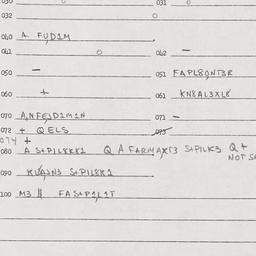 030 031
032
040 A. FUD1M
041 042 —
050 — 051 FAPL8QNT3R
060 + 061 KN8AL3XL8
070 A,NFEJD1M1N 071 —
072 + QELS 073
074 +
080 A S+P1LKKK1 Q A FARMAKT3 S+P1LK3 Q+
NOT
090 S+P1L8K1
100 M3 FAS+P1L1T